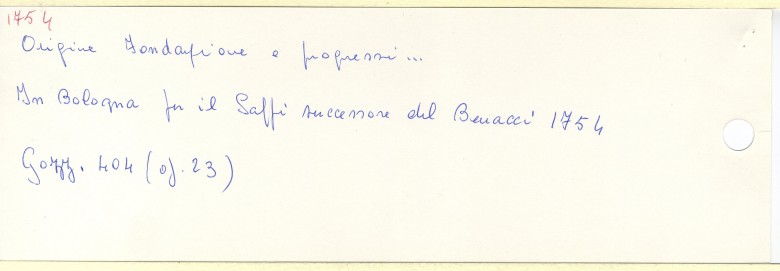 1754
Origine Fondazione e progressi...
In Bologna per il Saffi successore del Benacci 1754
Gozz. 404 (of. 23)